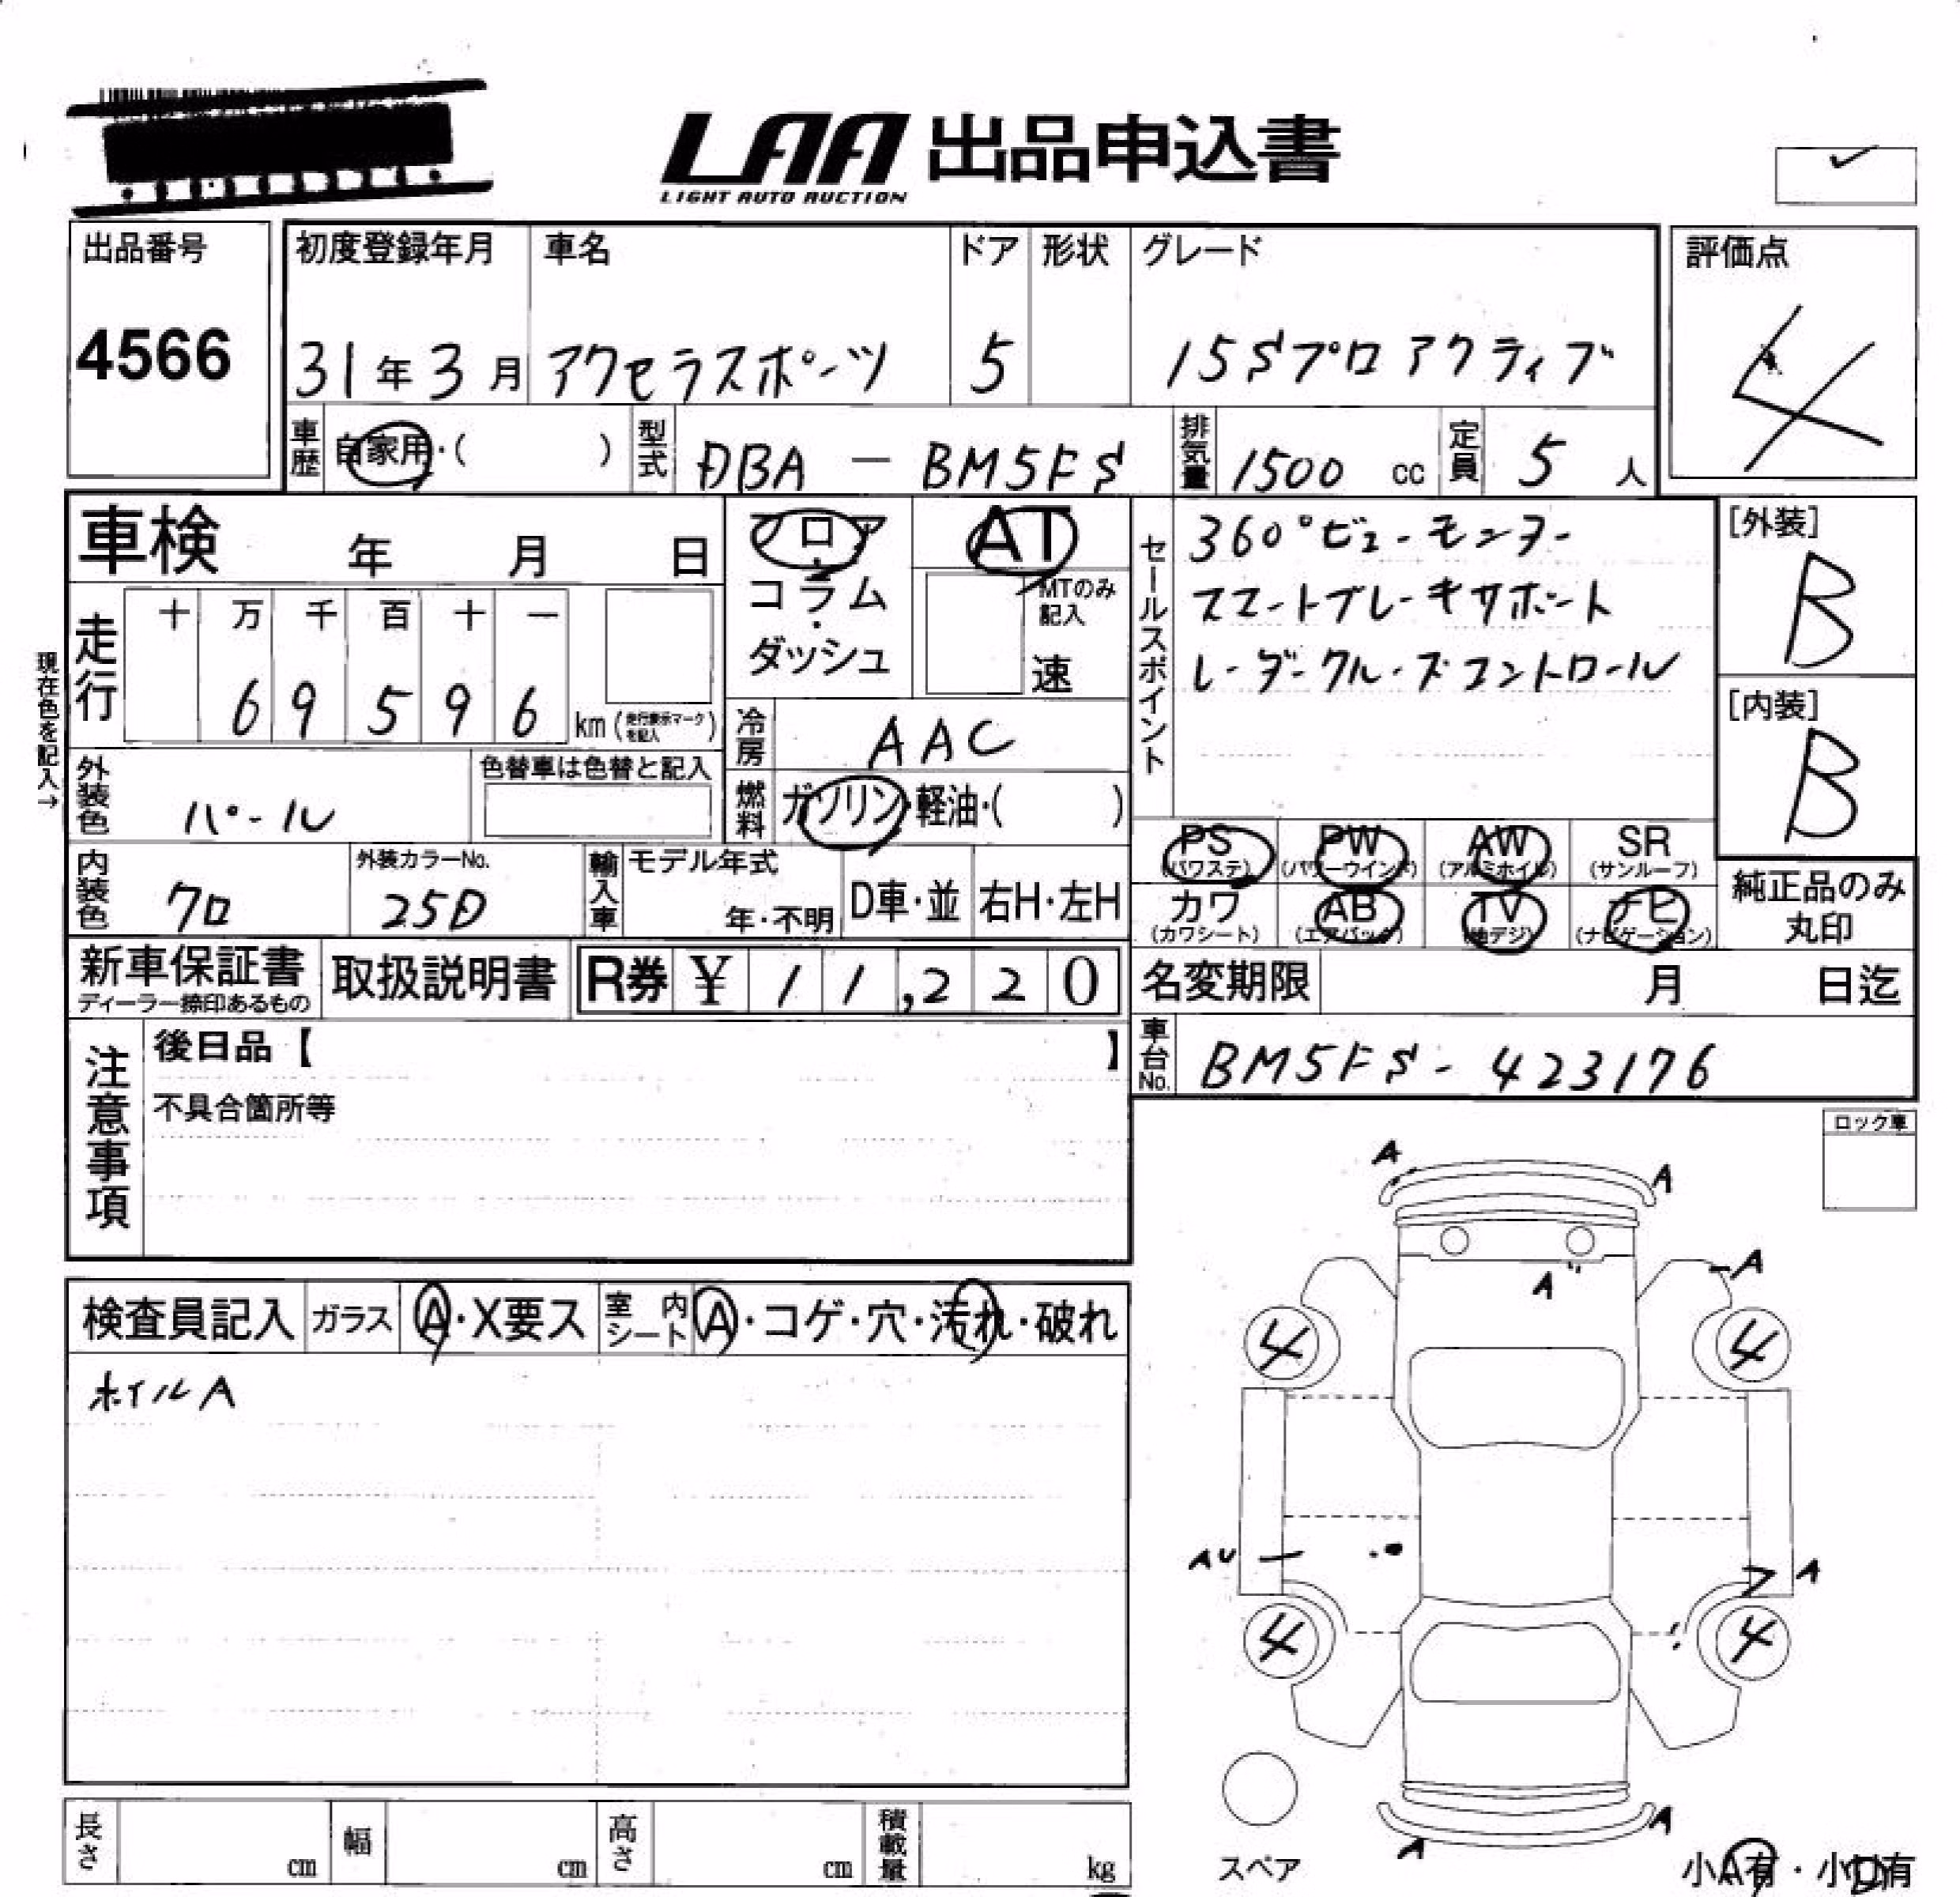 LAA 出品申込書
LIGHT AUTO AUCTION
出品番号
4566
初度登録年月
31年3月
車名
アクセラスポーツ
ドア
5
形状
グレード
15Sプロアクティブ
評価点
4
車歴
自家用・( )
型式
DBA - BM5FS
排気量
1500 cc
定員
5 人
車検 年 月 日
フロア・コラム・ダッシュ
AT
MTのみ記入
速
セールスポイント
360°ビューモニター
スマートブレーキサポート
レーダークルーズコントロール
[外装]
B
[内装]
B
現在色を記入→
走行
十 万 千 百 十 一
6 9 5 9 6 km (走行表示マークを記入)
冷房
AAC
燃料
ガソリン・軽油・( )
外装色
パール
色替車は色替と記入
内装色
クロ
外装カラーNo.
25D
輸入車
モデル年式
年・不明
D車・並
右H・左H
PS (パワステ)
PW (パワーウインド)
AW (アルミホイル)
SR (サンルーフ)
カワ (カワシート)
AB (エアバック)
TV (地デジ)
ナビ (ナビゲーション)
純正品のみ丸印
新車保証書
ディーラー捺印あるもの
取扱説明書
R券 ¥ 11,220
名変期限 月 日迄
車台No.
BM5FS-423176
注意事項
後日品【 】
不具合箇所等
ロック車
検査員記入
ガラス
A・X要ス
室内シート
A・コゲ・穴・汚れ・破れ
ホイルA
A
A
A
A
4
4
AU
A
4
4
A
A
スペア
小A有・小U有
長さ cm
幅 cm
高さ cm
積載量 kg